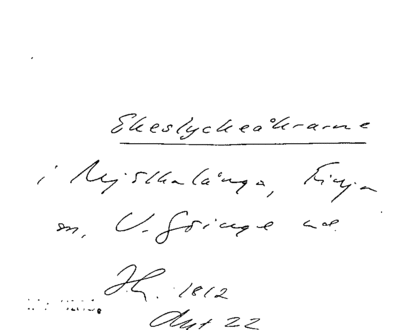 Ekeslyckeåkrarne
i Mjölkalånga, Finja
sn, V. Göinge hd
Sk. 1812
Akt 22